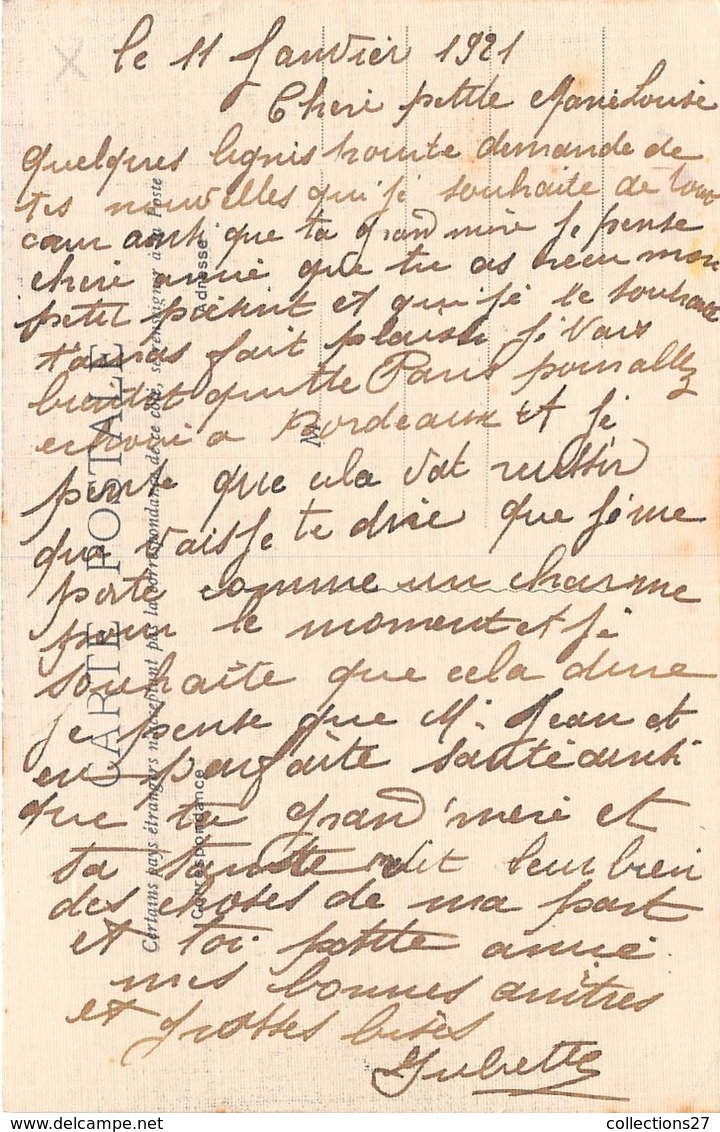 le 11 Janvier 1921
Cheri petite Marie Louise
quelques lignis pour te demande de
tes nouvelles qui je souhaite de tout
cœur ainsi que ta grand mere Je pense
cheri amie que tu as recu mon
petit présent et qui je le souhaite
t'auras fait plaisir Je Vais
bientot quitte Paris pour allez
a Bordeaux et Je
pense que cela Vat reussir
que Vais Je te dire que Je me
porte comme un charme
pour le moment et Je
souhaite que cela dure
Je pense que M. Jean et
en parfaite santé ainsi
que ta grand'mere et
ta tante dit leur bien
des choses de ma part
et toi petite amie
mes bonnes amitres
et grosses bises
CARTE POSTALE
Certains pays étrangers n'acceptent pas la correspondance de ce côté, se renseigner à la Poste
Correspondance
Adresse
M
collections27